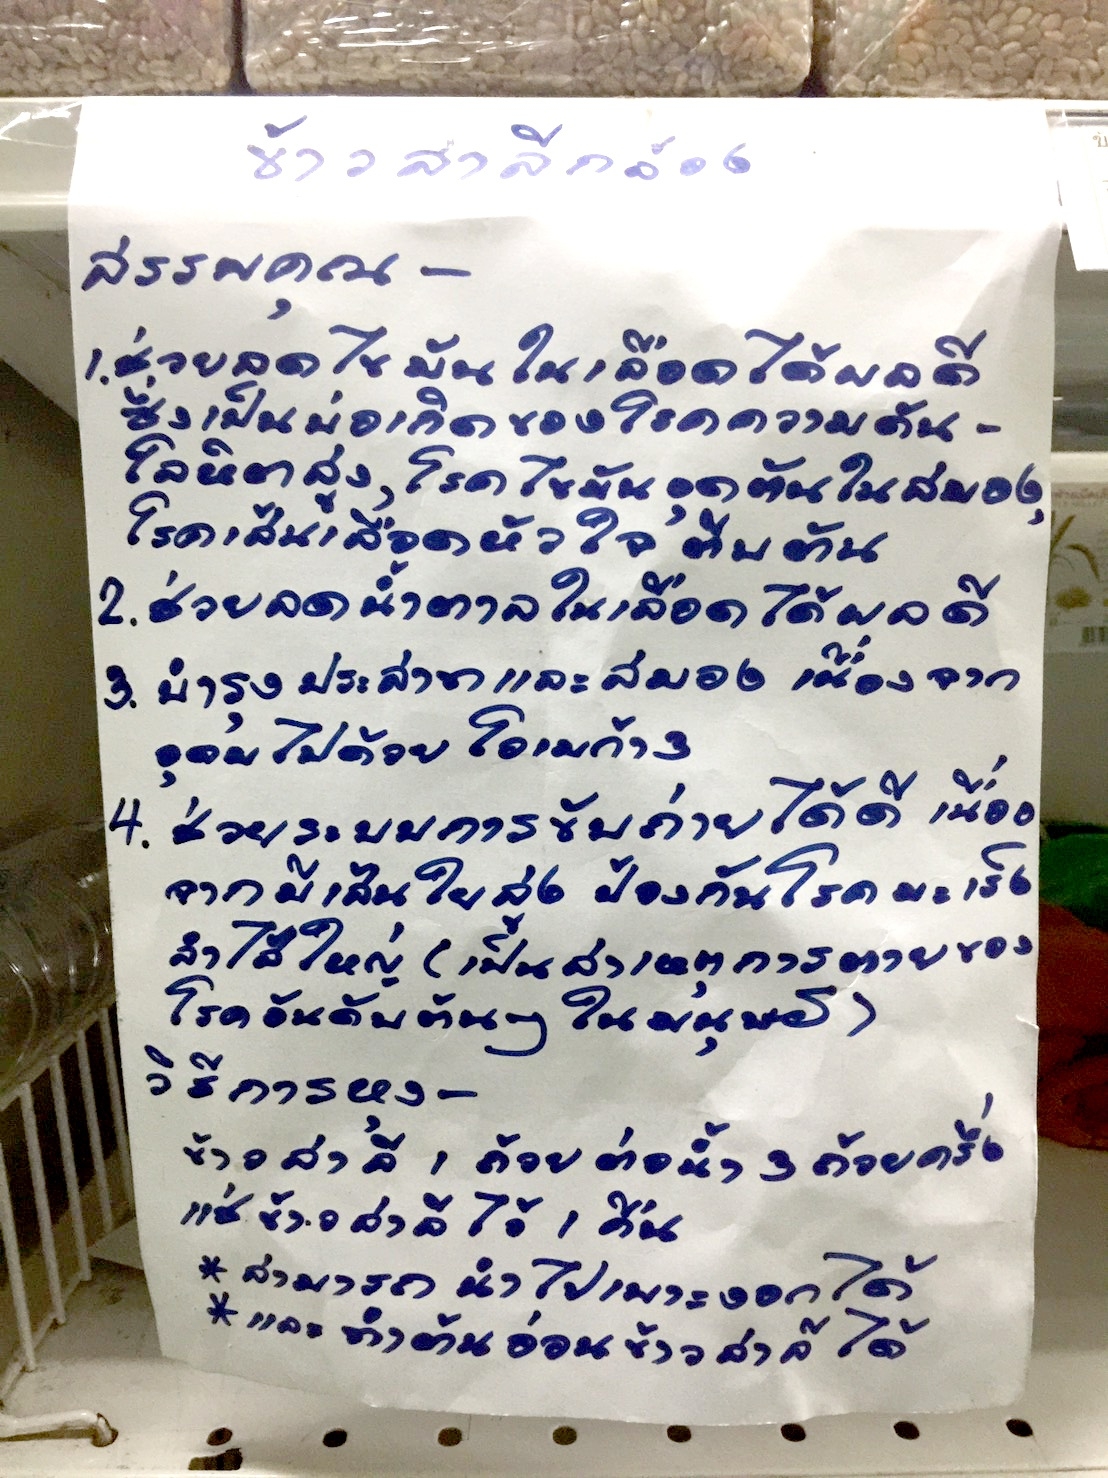 ข้าวสาลีกล้อง
สรรพคุณ -
1. ช่วยลดไขมันในเลือดได้ผลดี
ซึ่งเป็นบ่อเกิดของโรคความดัน -
โลหิตสูง, โรคไขมันอุดตันในสมอง,
โรคเส้นเลือดหัวใจตีบตัน
2. ช่วยลดน้ำตาลในเลือดได้ผลดี
3. บำรุงประสาทและสมอง เนื่องจาก
อุดมไปด้วย โอเมก้า 3
4. ช่วยระบบการขับถ่ายได้ดี เนื่อง
จากมีเส้นใยสูง ป้องกันโรคมะเร็ง
ลำไส้ใหญ่ (เป็นสาเหตุการตายของ
โรคอันดับต้นๆ ในมนุษย์)
วิธีการหุง -
ข้าวสาลี 1 ถ้วยต่อน้ำ 3 ถ้วยครึ่ง
แช่ข้าวสาลีไว้ 1 คืน
* สามารถ นำไปเพาะงอกได้
* และ ทำต้นอ่อนข้าวสาลีได้